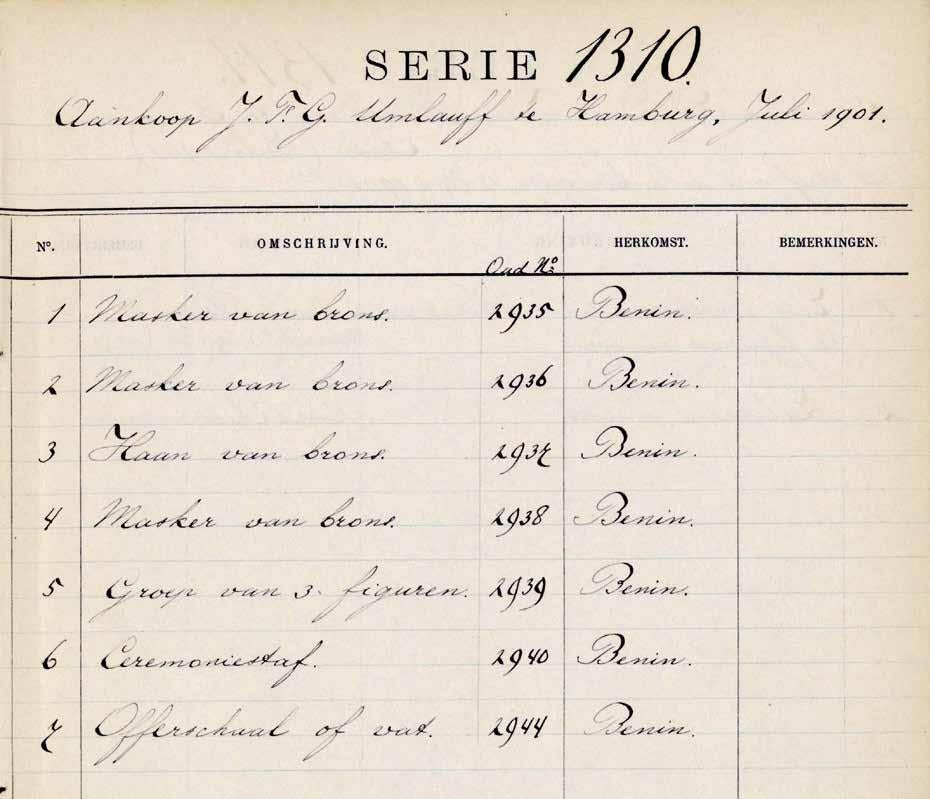 SERIE 1310.
Aankoop J. F. G. Umlauff te Hamburg, Juli 1901.
No. OMSCHRIJVING. Oud No. HERKOMST. BEMERKINGEN.
1 Masker van brons. 2935 Benin.
2 Masker van brons. 2936 Benin.
3 Haan van brons. 2937 Benin.
4 Masker van brons. 2938 Benin.
5 Groep van 3. figuren. 2939 Benin.
6 Ceremoniestaf. 2940 Benin.
7 Offerschaal of vat. 2944 Benin.